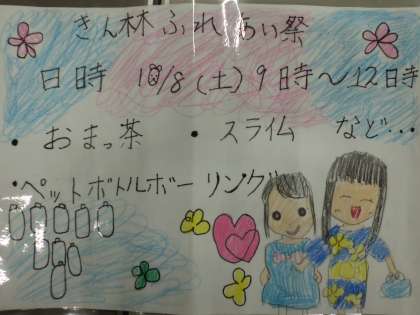 きん林ふれあい祭
日時 10/8(土)9時～12時
・おまっ茶 ・スライム など…
・ペットボトルボーリング